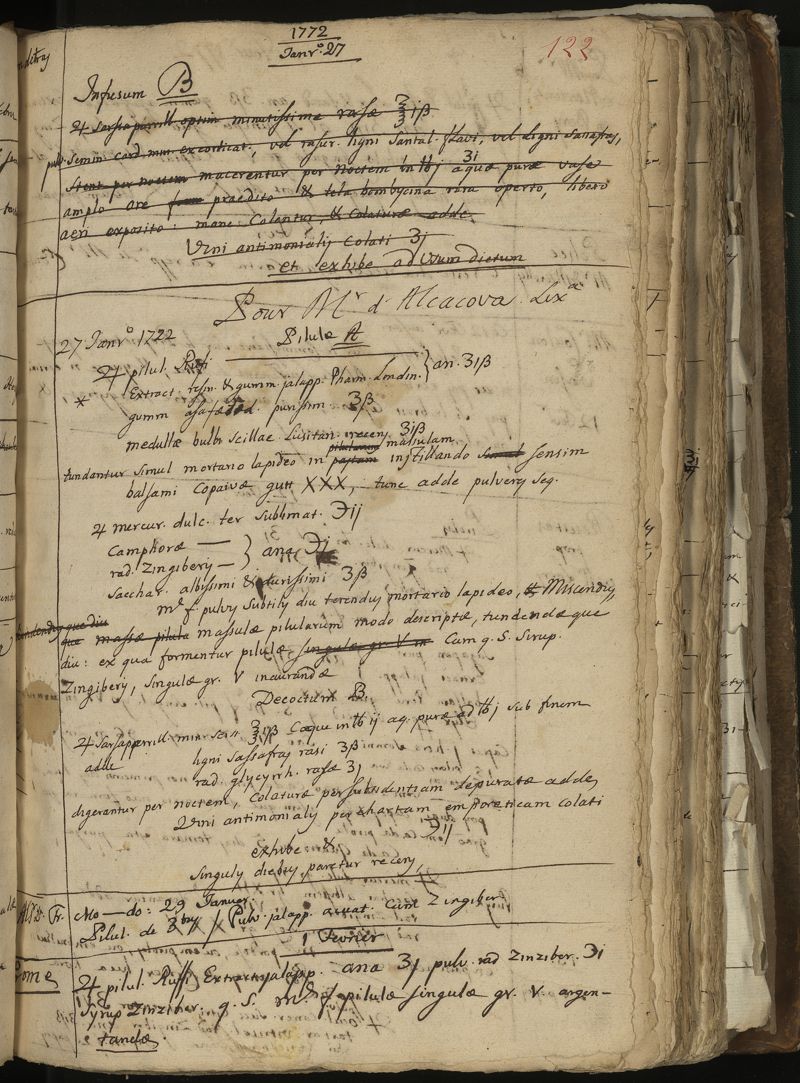 1772
Janr.º 27
122
Infusum B
♃ Sarsaparrill optim minutissime rasæ ʒiß
pulv. semin. Card. min. excorticat, vel rasur. ligni Santal. flavi, vel Ligni Sassafras, ʒi
stent per noctem macerentur per Noctem in ℔j aquæ puræ vase
amplo ore praedito & tela bombycina rara operto, libero
aeri exposito: mane Colentur, & Colaturæ adde,
Vini antimonialis Colati ʒj
et exhibe ad Usum dictum
Pour Mr d'Alcacova. Lixª
27 Janrº 1722
Pilulæ A
♃ pilul. Rufi
* Extract. resin. & gumm. jalapp. Pharm. Londin. } an. ʒiß
gumm asafœtid. purissim. ʒß
medullæ bulbi Scillae Lusitan. recens ʒiß
tundantur simul mortario lapideo in pastam massulam instillando simul sensim
balsami Copaivæ gutt XXX, tunc adde pulveris seq.
♃ mercur. dulc. ter Sublimat. ℈ij
Camphoræ —
rad. Zingiberis — } ana ℈j
Sacchar. albissimi & purissimi ʒß
m.e f. pulvis Subtilis diu terendus mortario lapideo, & Miscendus
tundendus que diu
que massæ pilula massulæ pilularum modo descriptæ, tundendæ que
diu: ex qua formentur pilulæ singulæ gr. V Cum q. S. Sirup.
Zingiberis, singulæ gr. V inaurandæ
Decoctum B.
♃ Sarsapperrill. min. sciss. ʒiß Coque in ℔ij aq. puræ ad ℔j sub finem
adde ligni Sassafras rasi ʒß
rad. glycyrrh. rasæ ʒj
digerantur per noctem, Colaturæ per subsidentiam depuratæ adde,
Vini antimonialis per chartam emporeticam colati
℈ij
exhibe &
singulis diebus, paretur recens,
Fr. Mo—do: 29 Januer
Pilul. de / Pulv. jalapp. acuat. cum Zingiber
1 Fevrier
♃ pilul. Ruffi Extract. jalapp. ana ʒj pulv. rad Zinziber. ℈i
Syrup Zinziber. q. S. m.e f. pilulæ singulæ gr. V argen-
tandæ.